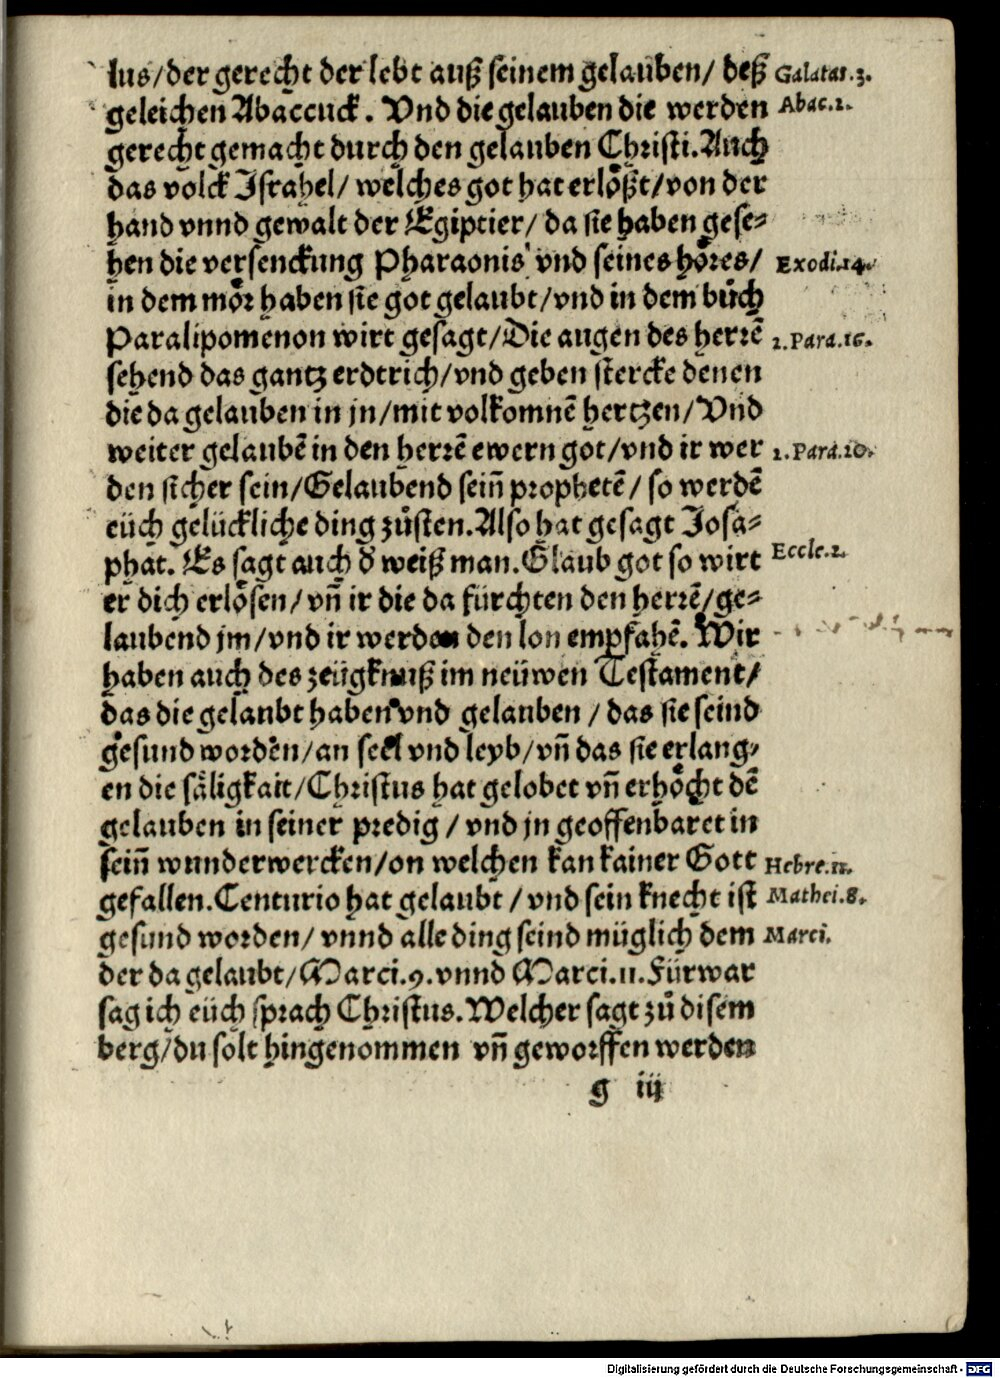 lus/der gerecht der lebt auß seinem gelauben/ deß Galatas.3.
geleichen Abaccuck. Vnd die gelauben die werden Abac.2.
gerecht gemacht durch den gelauben Christi. Auch
das volck Israhel/ welches got hat erlößt/von der
hand vnnd gewalt der Egiptier/ da sie haben gese-
hen die versenckung Pharaonis vnd seines höres/ Exodi.14.
in dem mör haben sie got gelaubt/vnd in dem bůch
Paralipomenon wirt gesagt/Die augen des herrē 2.Para.16.
sehend das gantz erdtrich/vnd geben stercke denen
die da gelauben in jn/mit volkomnē hertzen/Vnd
weiter gelaubē in den herrē ewern got/vnd ir wer 2.Para.20.
den sicher sein/Gelaubend sein̄ prophetē/ so werdē
eüch gelückliche ding zůsten. Also hat gesagt Josa-
phat. Es sagt auch d̄ weiß man. Glaub got so wirt Eccle.2.
er dich erlösen/vn̄ ir die da fürchten den herrē/ge-
laubend jm/vnd ir werden den lon empfahē. Wir
haben auch des zeügknuß im neüwen Testament/
das die gelaubt haben vnd gelauben / das sie seind
gesund worden/an seel vnd leyb/vn̄ das sie erlang-
en die säligkait/Christus hat gelobet vn̄ erhöcht dē
gelauben in seiner predig / vnd jn geoffenbaret in
sein̄ wunderwercken/on welchen kan kainer Gott Hebre.11.
gefallen. Centurio hat gelaubt / vnd sein knecht ist Mathei.8.
gesund worden/ vnnd alle ding seind müglich dem Marci.
der da gelaubt/Marci.9.vnnd Marci.11. Fürwar
sag ich eüch sprach Christus. Welcher sagt zů disem
berg/du solt hingenommen vn̄ geworffen werden
g iij
Digitalisierung gefördert durch die Deutsche Forschungsgemeinschaft - DFG